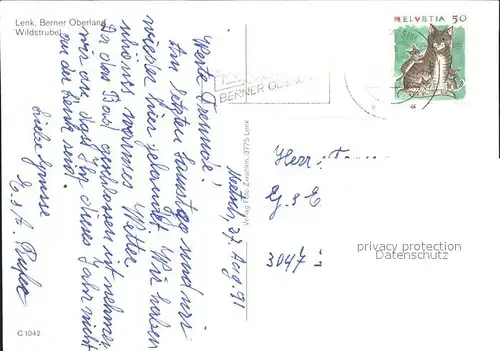 Lenk, Berner Oberland
Wildstrubel
HELVETIA 50
BERNER OBERL
Werte Freunde!
Am letzten Samstag sind wir
wieder hier gelandet. Wir haben
schönes warmes Wetter.
Da das Bad geschlossen ist nehmen
wir an, dass Ihr dieses Jahr nicht
an der Lenk seid.
Liebe Grüsse
27. Aug. 91
Verlag Foto Zwahlen, 3775 Lenk
Herr
3047
privacy protection
Datenschutz
C 1042